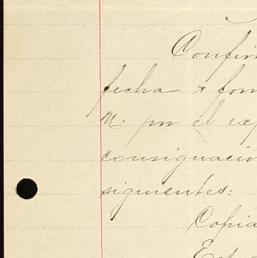 Confir
fecha x fon
M. por el exp
consignacion
siguientes:
Copia